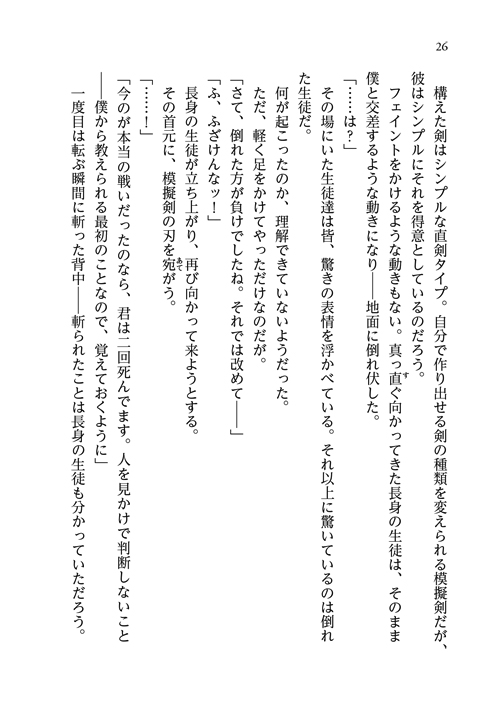 26
　構えた剣はシンプルな直剣タイプ。自分で作り出せる剣の種類を変えられる模擬剣だが、
彼はシンプルにそれを得意としているのだろう。
　フェイントをかけるような動きもない。真っ直ぐ向かってきた長身の生徒は、そのまま
僕と交差するような動きになり――地面に倒れ伏した。
「……は？」
　その場にいた生徒達は皆、驚きの表情を浮かべている。それ以上に驚いているのは倒れ
た生徒だ。
　何が起こったのか、理解できていないようだった。
　ただ、軽く足をかけてやっただけなのだが。
「さて、倒れた方が負けでしたね。それでは改めて――」
「ふ、ふざけんなッ！」
　長身の生徒が立ち上がり、再び向かって来ようとする。
　その首元に、模擬剣の刃を宛がう。
「……！」
「今のが本当の戦いだったのなら、君は二回死んでます。人を見かけで判断しないこと
――僕から教えられる最初のことなので、覚えておくように」
　一度目は転ぶ瞬間に斬った背中――斬られたことは長身の生徒も分かっていただろう。